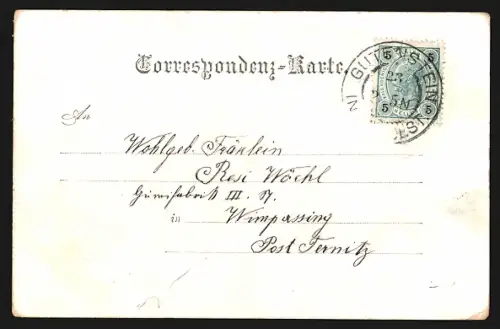 Correspondenz-Karte.
5 5
5 5
GUTENSTEIN IN
23
5N
An
Wohlgeb. Fräulein
Resi Wöchl
Gumifabrik III. St.
in Wimpassing
Post Ternitz